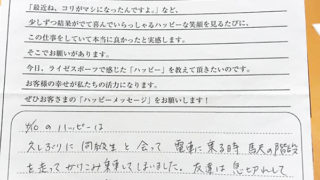 「最近ね、コリがマシになったんですよ。」など、
少しずつ結果がでて喜んでいらっしゃるハッピーな笑顔を見るたびに、
この仕事をしていて本当に良かったと実感します。
そこでお願いがあります。
今日、ライゼスポーツで感じた「ハッピー」を教えて頂きたいのです。
お客様の幸せが私たちの活力になります。
ぜひお客さまの「ハッピーメッセージ」をお願いします!
のハッピーは
久しぶりに同級生と会って電車に乗る時駅の階段
を走ってかけこみ乗車してしまいました。友達は息切れして